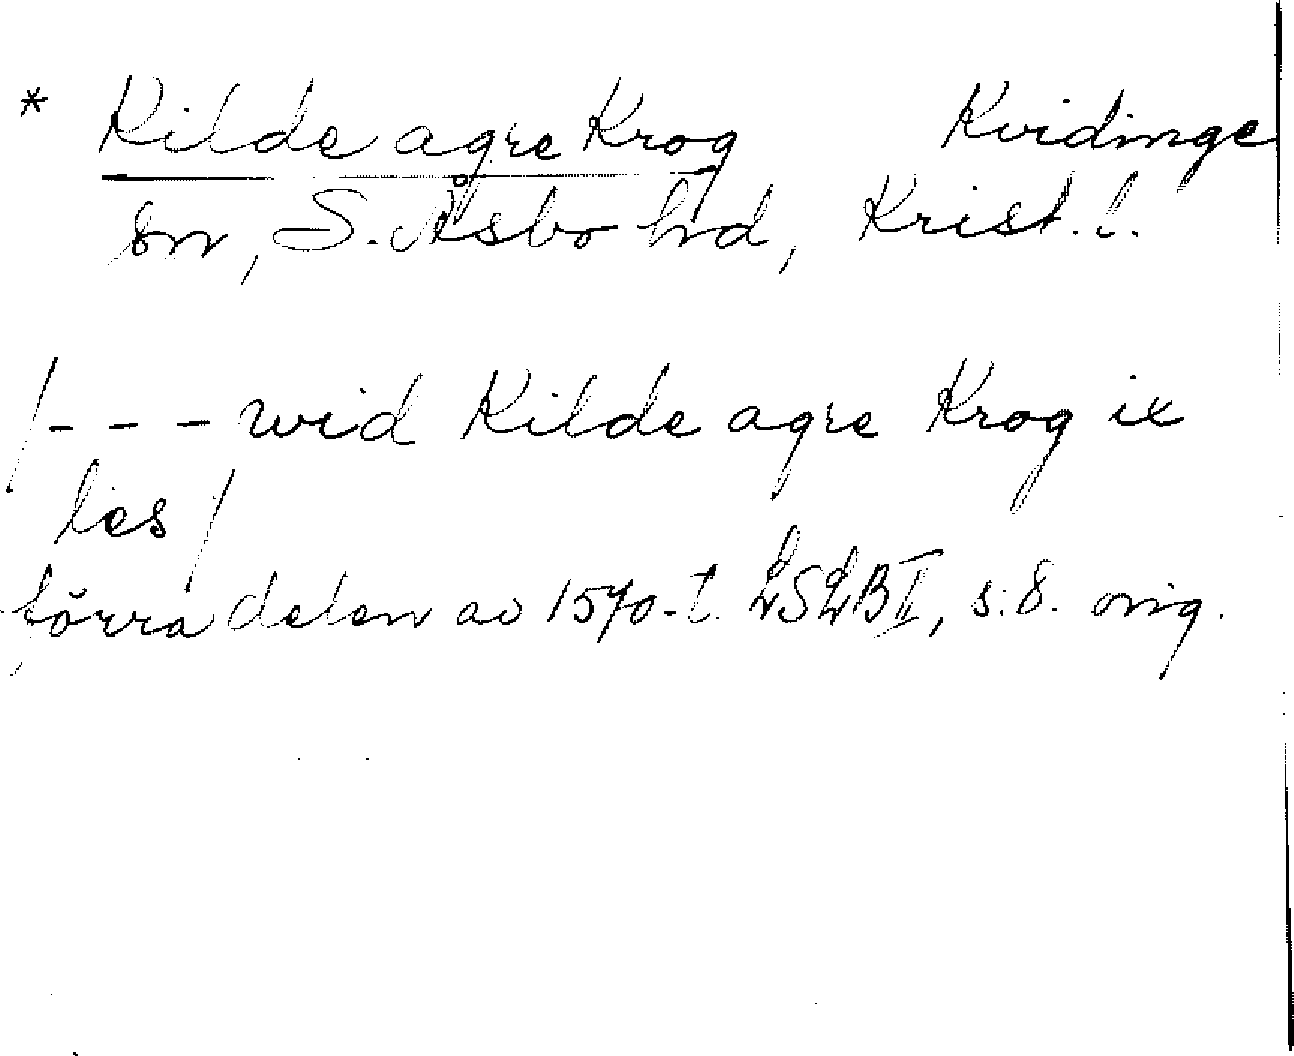 * Kilde agre Krog Kvidinge
sn, S. Åsbo hd, Krist. l.
/--- wid Kilde agre Krog ix
les/
förra delen av 1570-t. LSLB II, s. 8. orig.